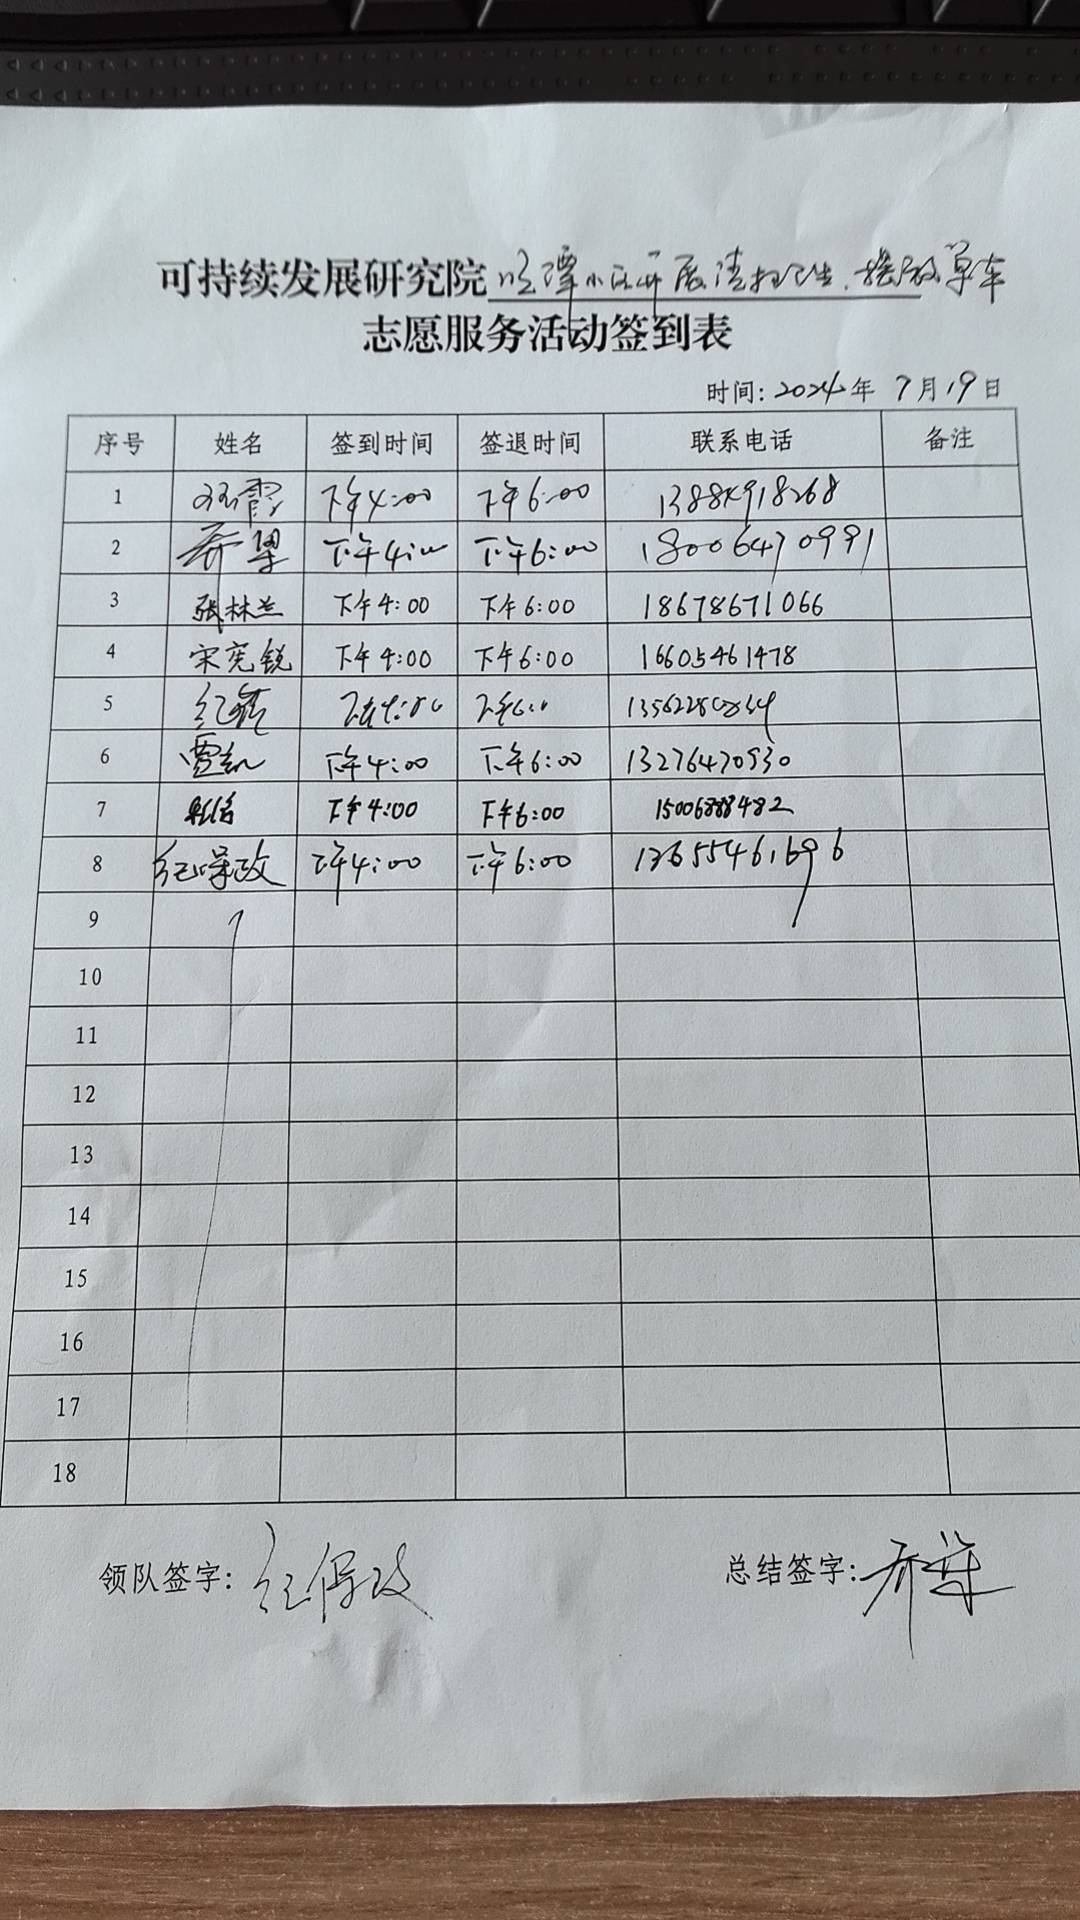 可持续发展研究院 潭小区开展清扫卫生、摆放单车
志愿服务活动签到表
时间: 2024年 7月19日
序号 姓名 签到时间 签退时间 联系电话 备注
1 霞 下午4:00 下午6:00 13884918268
2 乔梁 下午4:00 下午6:00 18006470991
3 张林兰 下午4:00 下午6:00 18678671066
4 宋宪锐 下午4:00 下午6:00 16605461478
5 下午4:00 下午6:00
6 贾凯 下午4:00 下午6:00 13276470930
7 下午4:00 下午6:00 15006888482
8 纪保政 下午4:00 下午6:00 13655461696
9
10
11
12
13
14
15
16
17
18
领队签字: 纪保政 总结签字: 乔